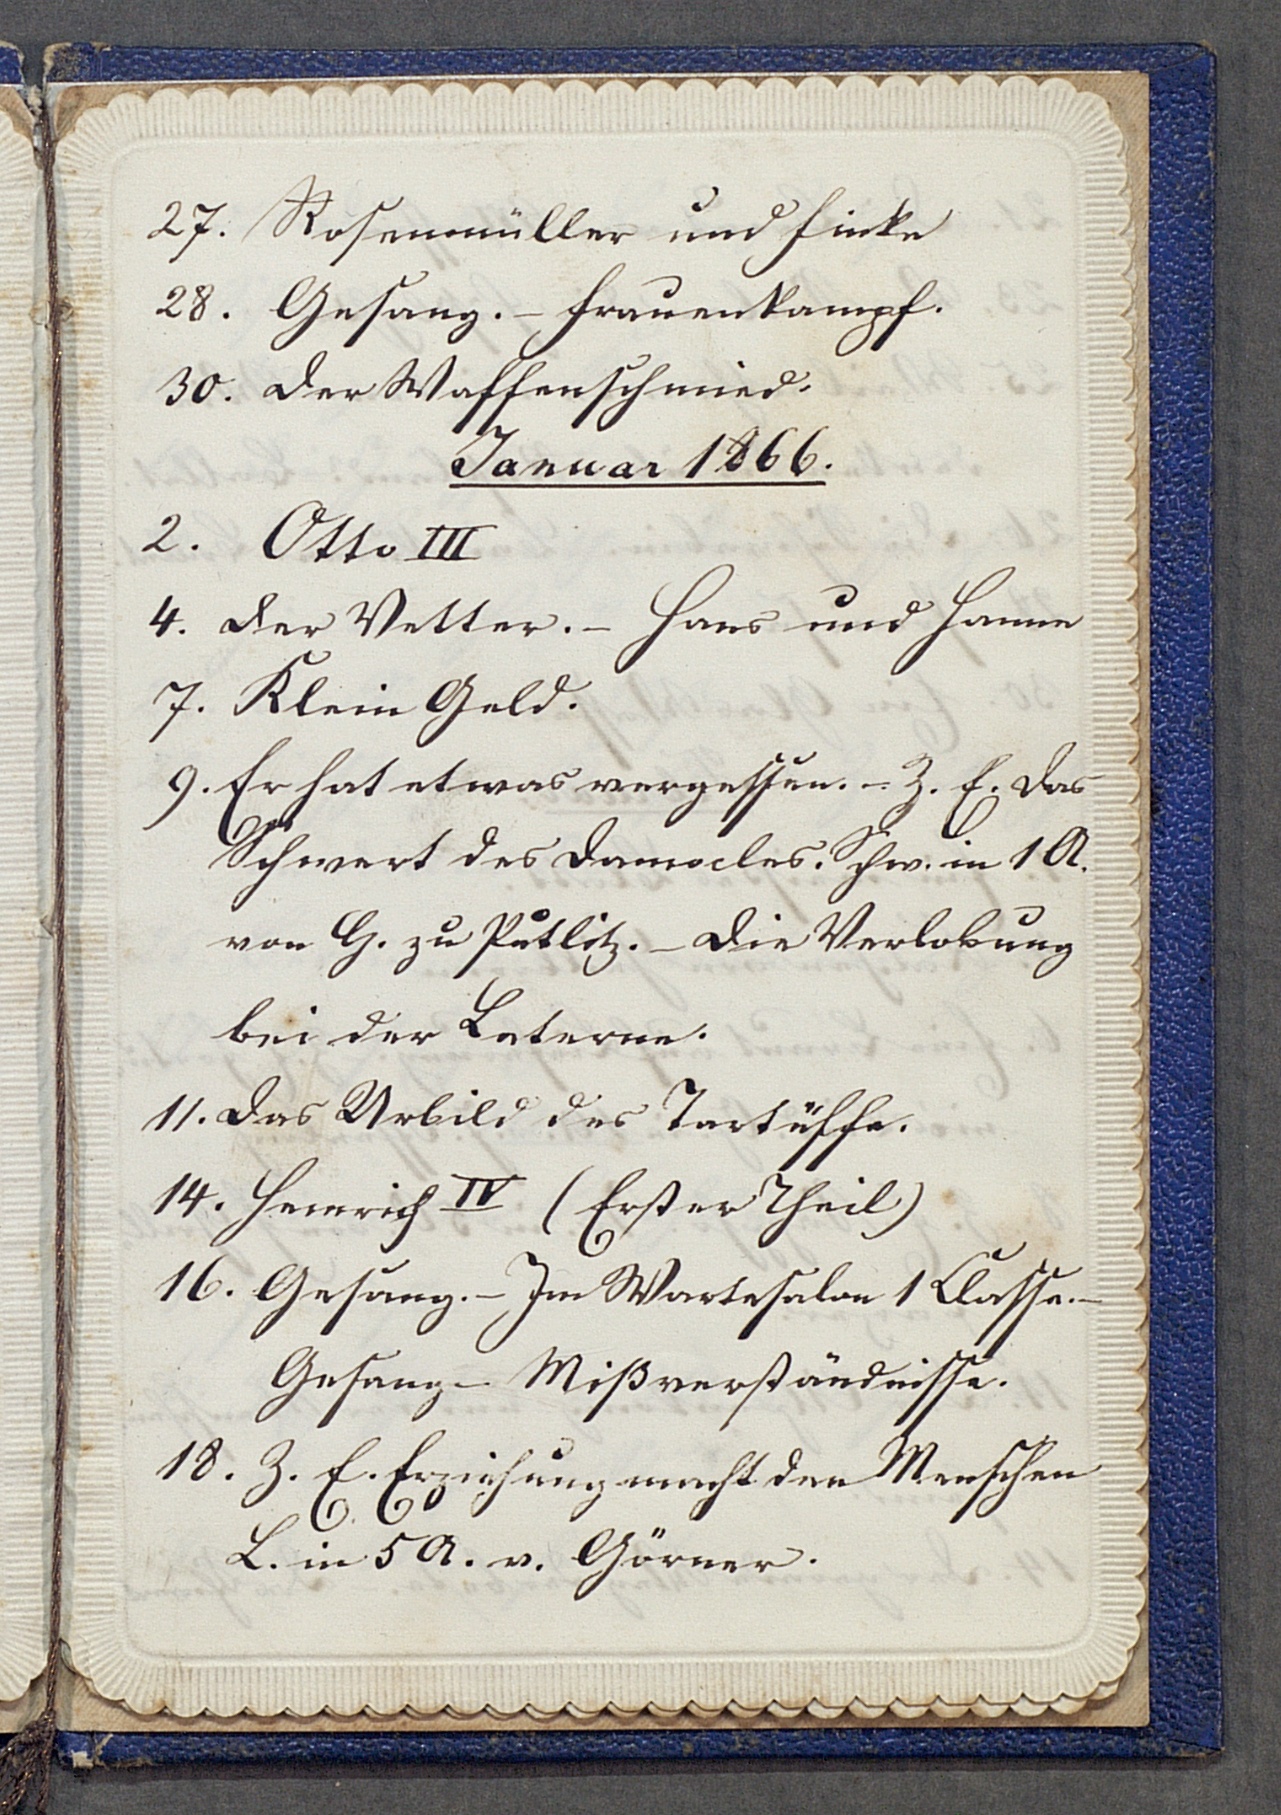 27. Rosenmüller und Finke
28. Gesang. – Frauenkampf.
30. Der Waffenschmied.
Januar 1866.
2. Otto III
4. Der Vetter. – Hans und Hanne
7. Klein Geld.
9. Er hat etwas vergessen. – Z. E. Das
Schwert des Damocles. Schw. in 1 A.
von G. zu Putlitz. – Die Verlobung
bei der Laterne.
11. Das Urbild des Tartüffe.
14. Heinrich IV (Erster Theil)
16. Gesang. – Im Wartesalon 1 Classe. –
Gesang – Mißverständnisse.
18. Z. E. Erziehung macht den Menschen
L. in 5 A. v. Görner.